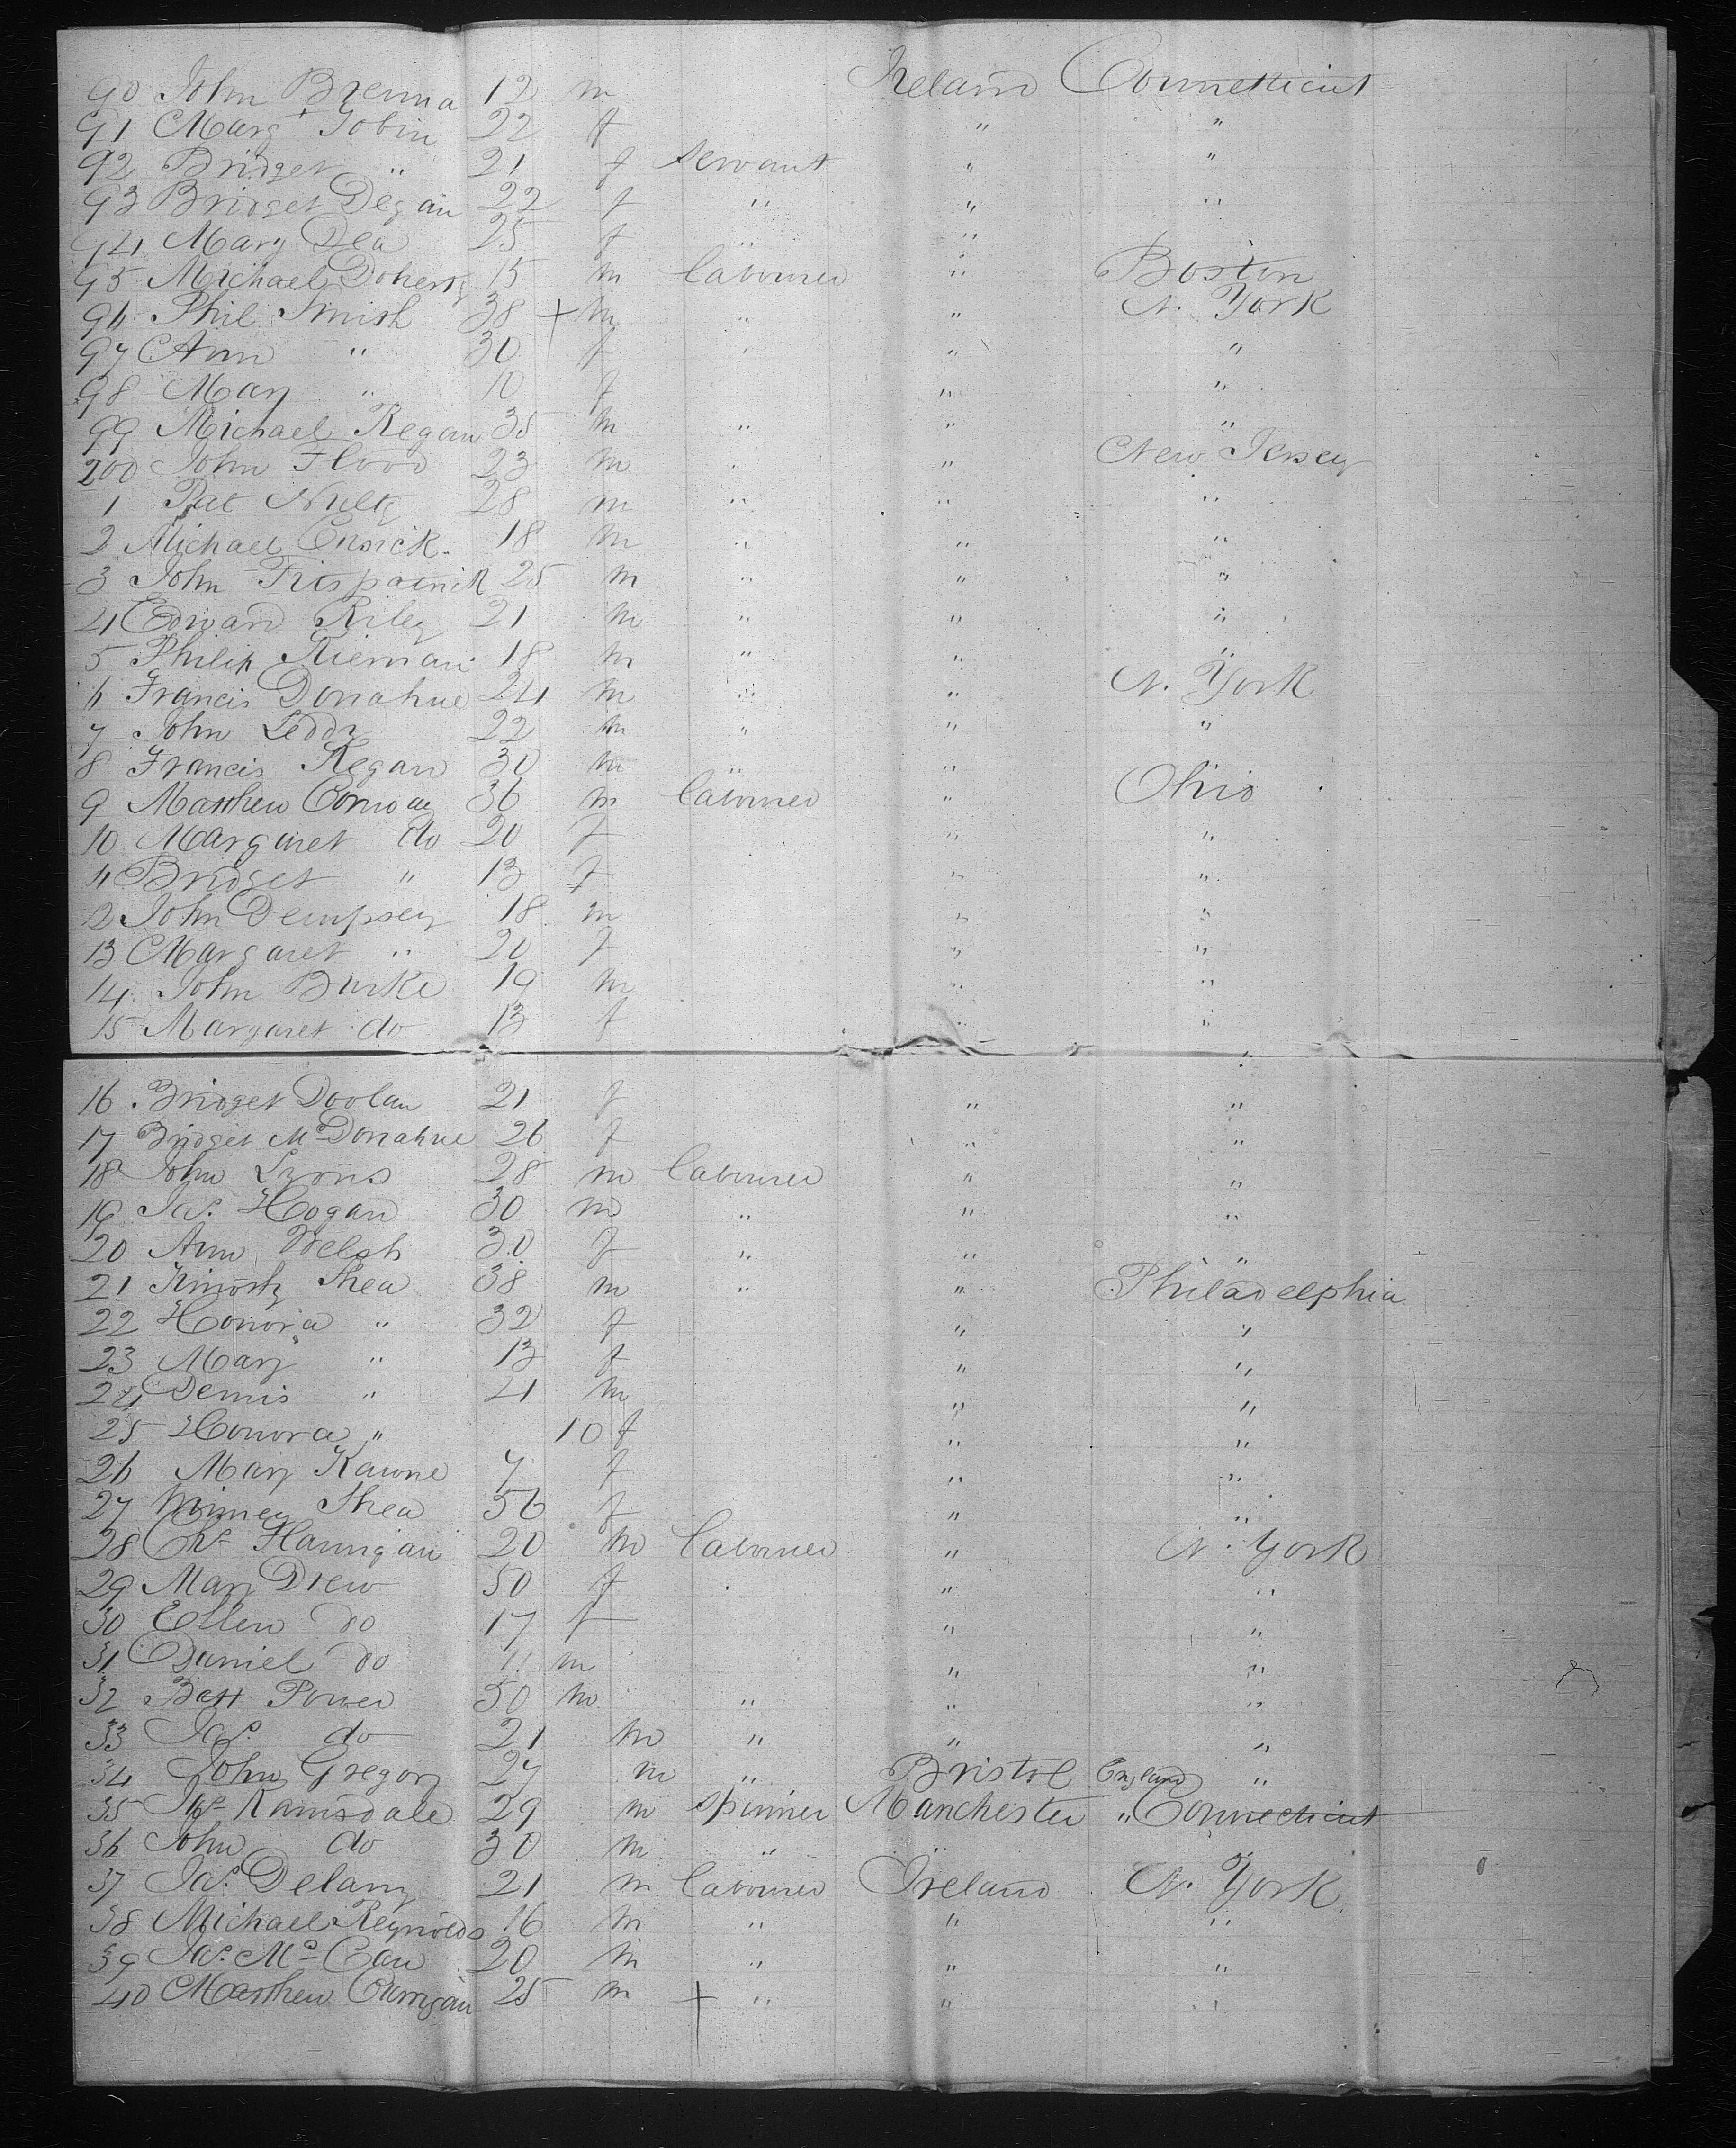 90 John Brenna 12 m Ireland Connetticut
91 Marg't Tobin 22 f " "
92 Bridget " 21 f servant " "
93 Bridget Degan 22 f " " "
94 Mary Dea 25 f " "
95 Michael Doherty 15 m labourer " Boston
96 Phil Smith 38 + m " " N. York
97 Ann " 30 f " " "
98 Mary " 10 f " "
99 Michael Regan 35 m " " "
200 John Flood 23 m " " New Jersey
1 Pat Nulty 28 m " " "
2 Michael Cusick 18 m " " "
3 John Fitspatrick 25 m " " "
4 Edward Riley 21 m " " "
5 Philip Kiernan 18 m " " "
6 Francis Donahue 24 m " " N. York
7 John Leddy 22 m " " "
8 Francis Regan 30 m " "
9 Matthew Conway 36 m labourer " Ohio
10 Margaret do 20 f " "
11 Bridget " 13 f " "
12 John Dempsey 18 m " "
13 Margaret " 20 f " "
14 John Burke 19 m " "
15 Margaret do 13 f " "
16 Bridget Doolan 21 f " "
17 Bridget McDonahue 26 f " "
18 John Lyons 28 m labourer " "
19 Jas. Hogan 30 m " " "
20 Ann Welsh 30 f " " "
21 Timothy Shea 38 m " " Philadelphia
22 Honora " 32 f " "
23 Mary " 13 f " "
24 Dennis " 4 m " "
25 Honora " 10 f " "
26 Mary 7 f " "
27 Shea 56 f " "
28 Hannigan 20 m labourer " N. York
29 Mary Drew 50 f " "
30 Ellen do 17 f " "
31 Daniel do 11 m " "
32 Power 50 m " " "
33 Jas. do 21 m " " "
34 John Gregory 27 m " Bristol England "
35 Ramsdale 29 m spinner Manchester " Connecticut
36 John do 30 m " " "
37 Jas. Delany 21 m labourer Ireland N. York
38 Michael Reynolds 16 m " " "
39 Jas. McCan 20 m " " "
40 Matthew 25 m + " " "